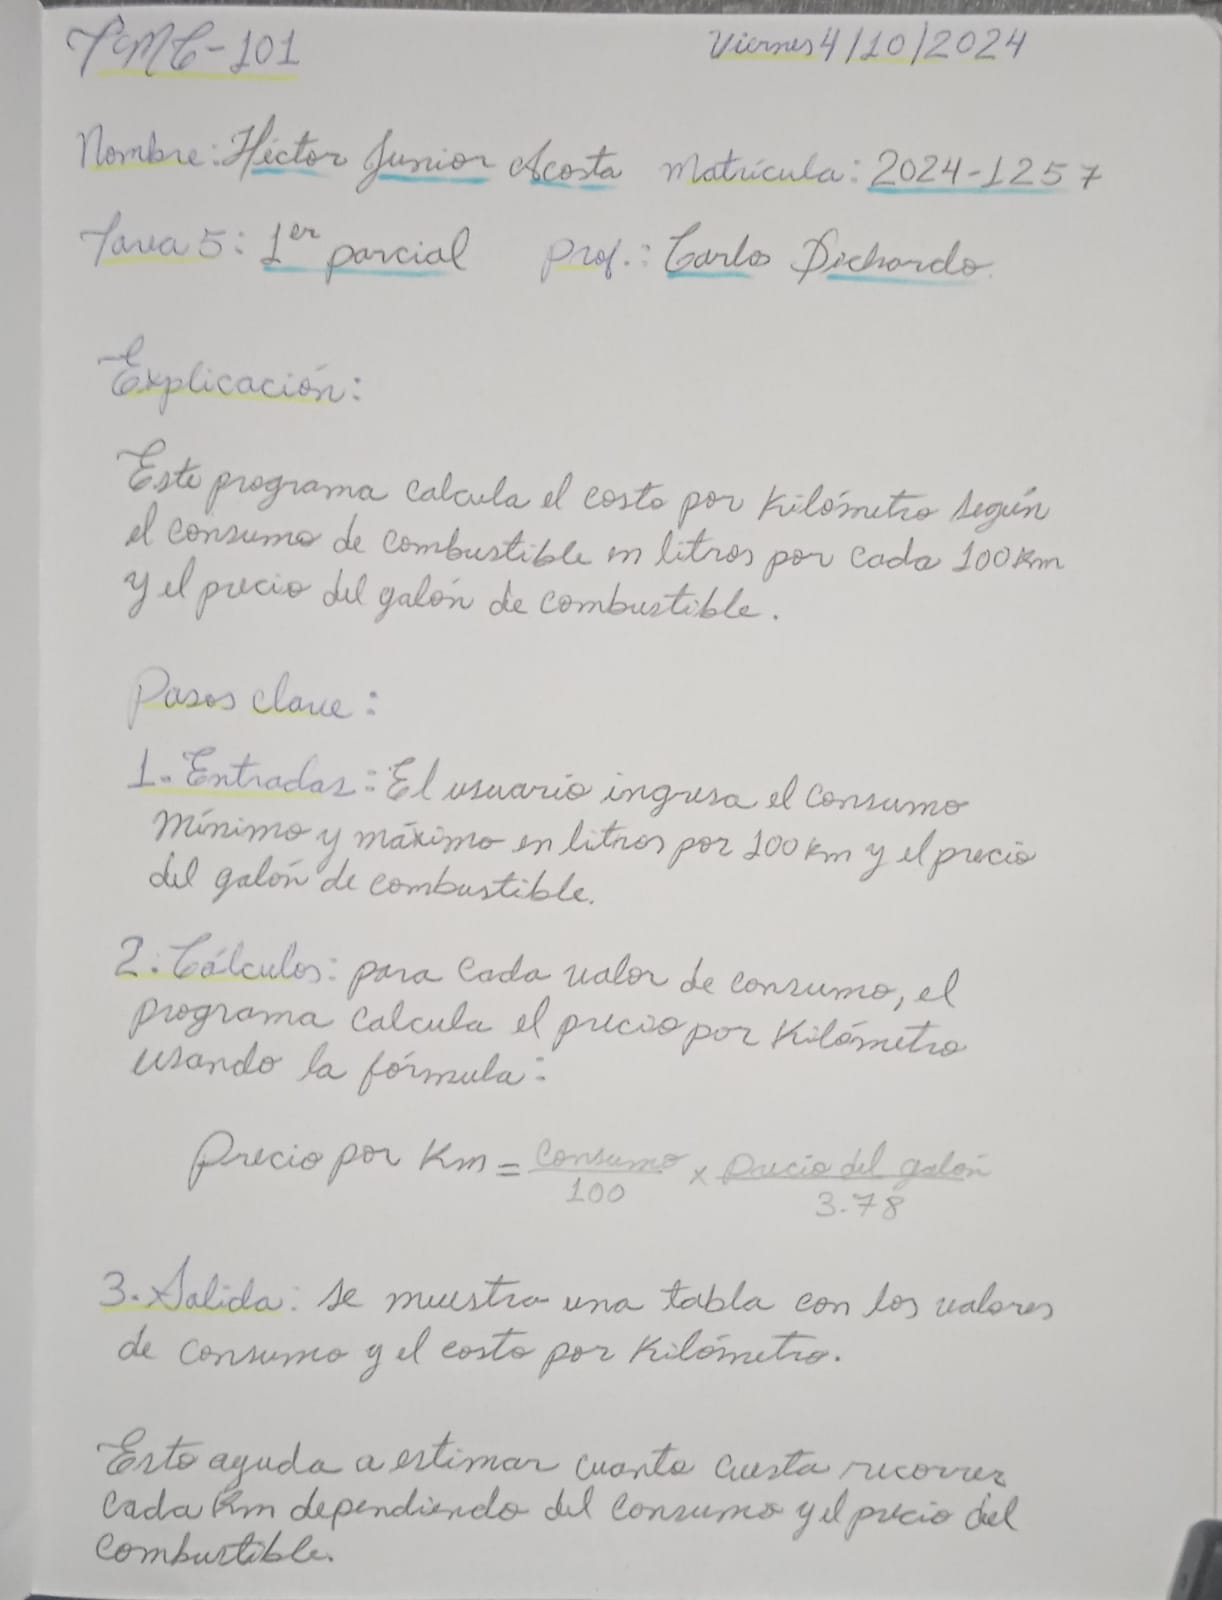 TMC-101 Viernes 4/10/2024
Nombre: Héctor Junior Acosta Matrícula: 2024-1257
Tarea 5: 1er parcial Prof.: Carlos Pichardo
Explicación:
Este programa calcula el costo por Kilómetro según
el consumo de combustible en litros por cada 100 Km
y el precio del galón de combustible.
Pasos clave:
1. Entradas: El usuario ingresa el consumo
mínimo y máximo en litros por 100 Km y el precio
del galón de combustible.
2. Cálculos: para cada valor de consumo, el
programa calcula el precio por Kilómetro
usando la fórmula:
Precio por Km = Consumo/100 x Precio del galón/3.78
3. Salida: se muestra una tabla con los valores
de consumo y el costo por Kilómetro.
Esto ayuda a estimar cuanto cuesta recorrer
cada Km dependiendo del consumo y el precio del
combustible.